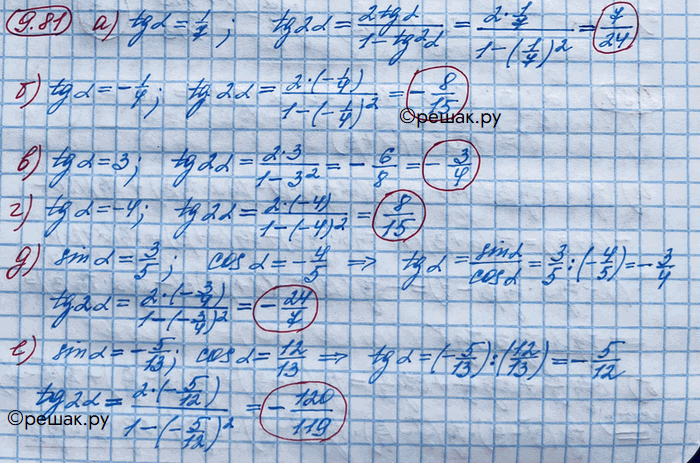 9.81 а) tgα = 1/7; tg2α = 2tgα/(1 - tg²α) = (2·1/7)/(1 - (1/7)²) = 7/24
б) tgα = -1/4; tg2α = (2·(-1/4))/(1 - (-1/4)²) = -8/15
©решак.ру
в) tgα = 3; tg2α = (2·3)/(1 - 3²) = -6/8 = -3/4
г) tgα = -4; tg2α = (2·(-4))/(1 - (-4)²) = 8/15
д) sinα = 3/5; cosα = -4/5 ⇒ tgα = sinα/cosα = 3/5 : (-4/5) = -3/4
tg2α = (2·(-3/4))/(1 - (-3/4)²) = -24/7
е) sinα = -5/13; cosα = 12/13 ⇒ tgα = (-5/13) : (12/13) = -5/12
tg2α = (2·(-5/12))/(1 - (-5/12)²) = -120/119
©решак.ру